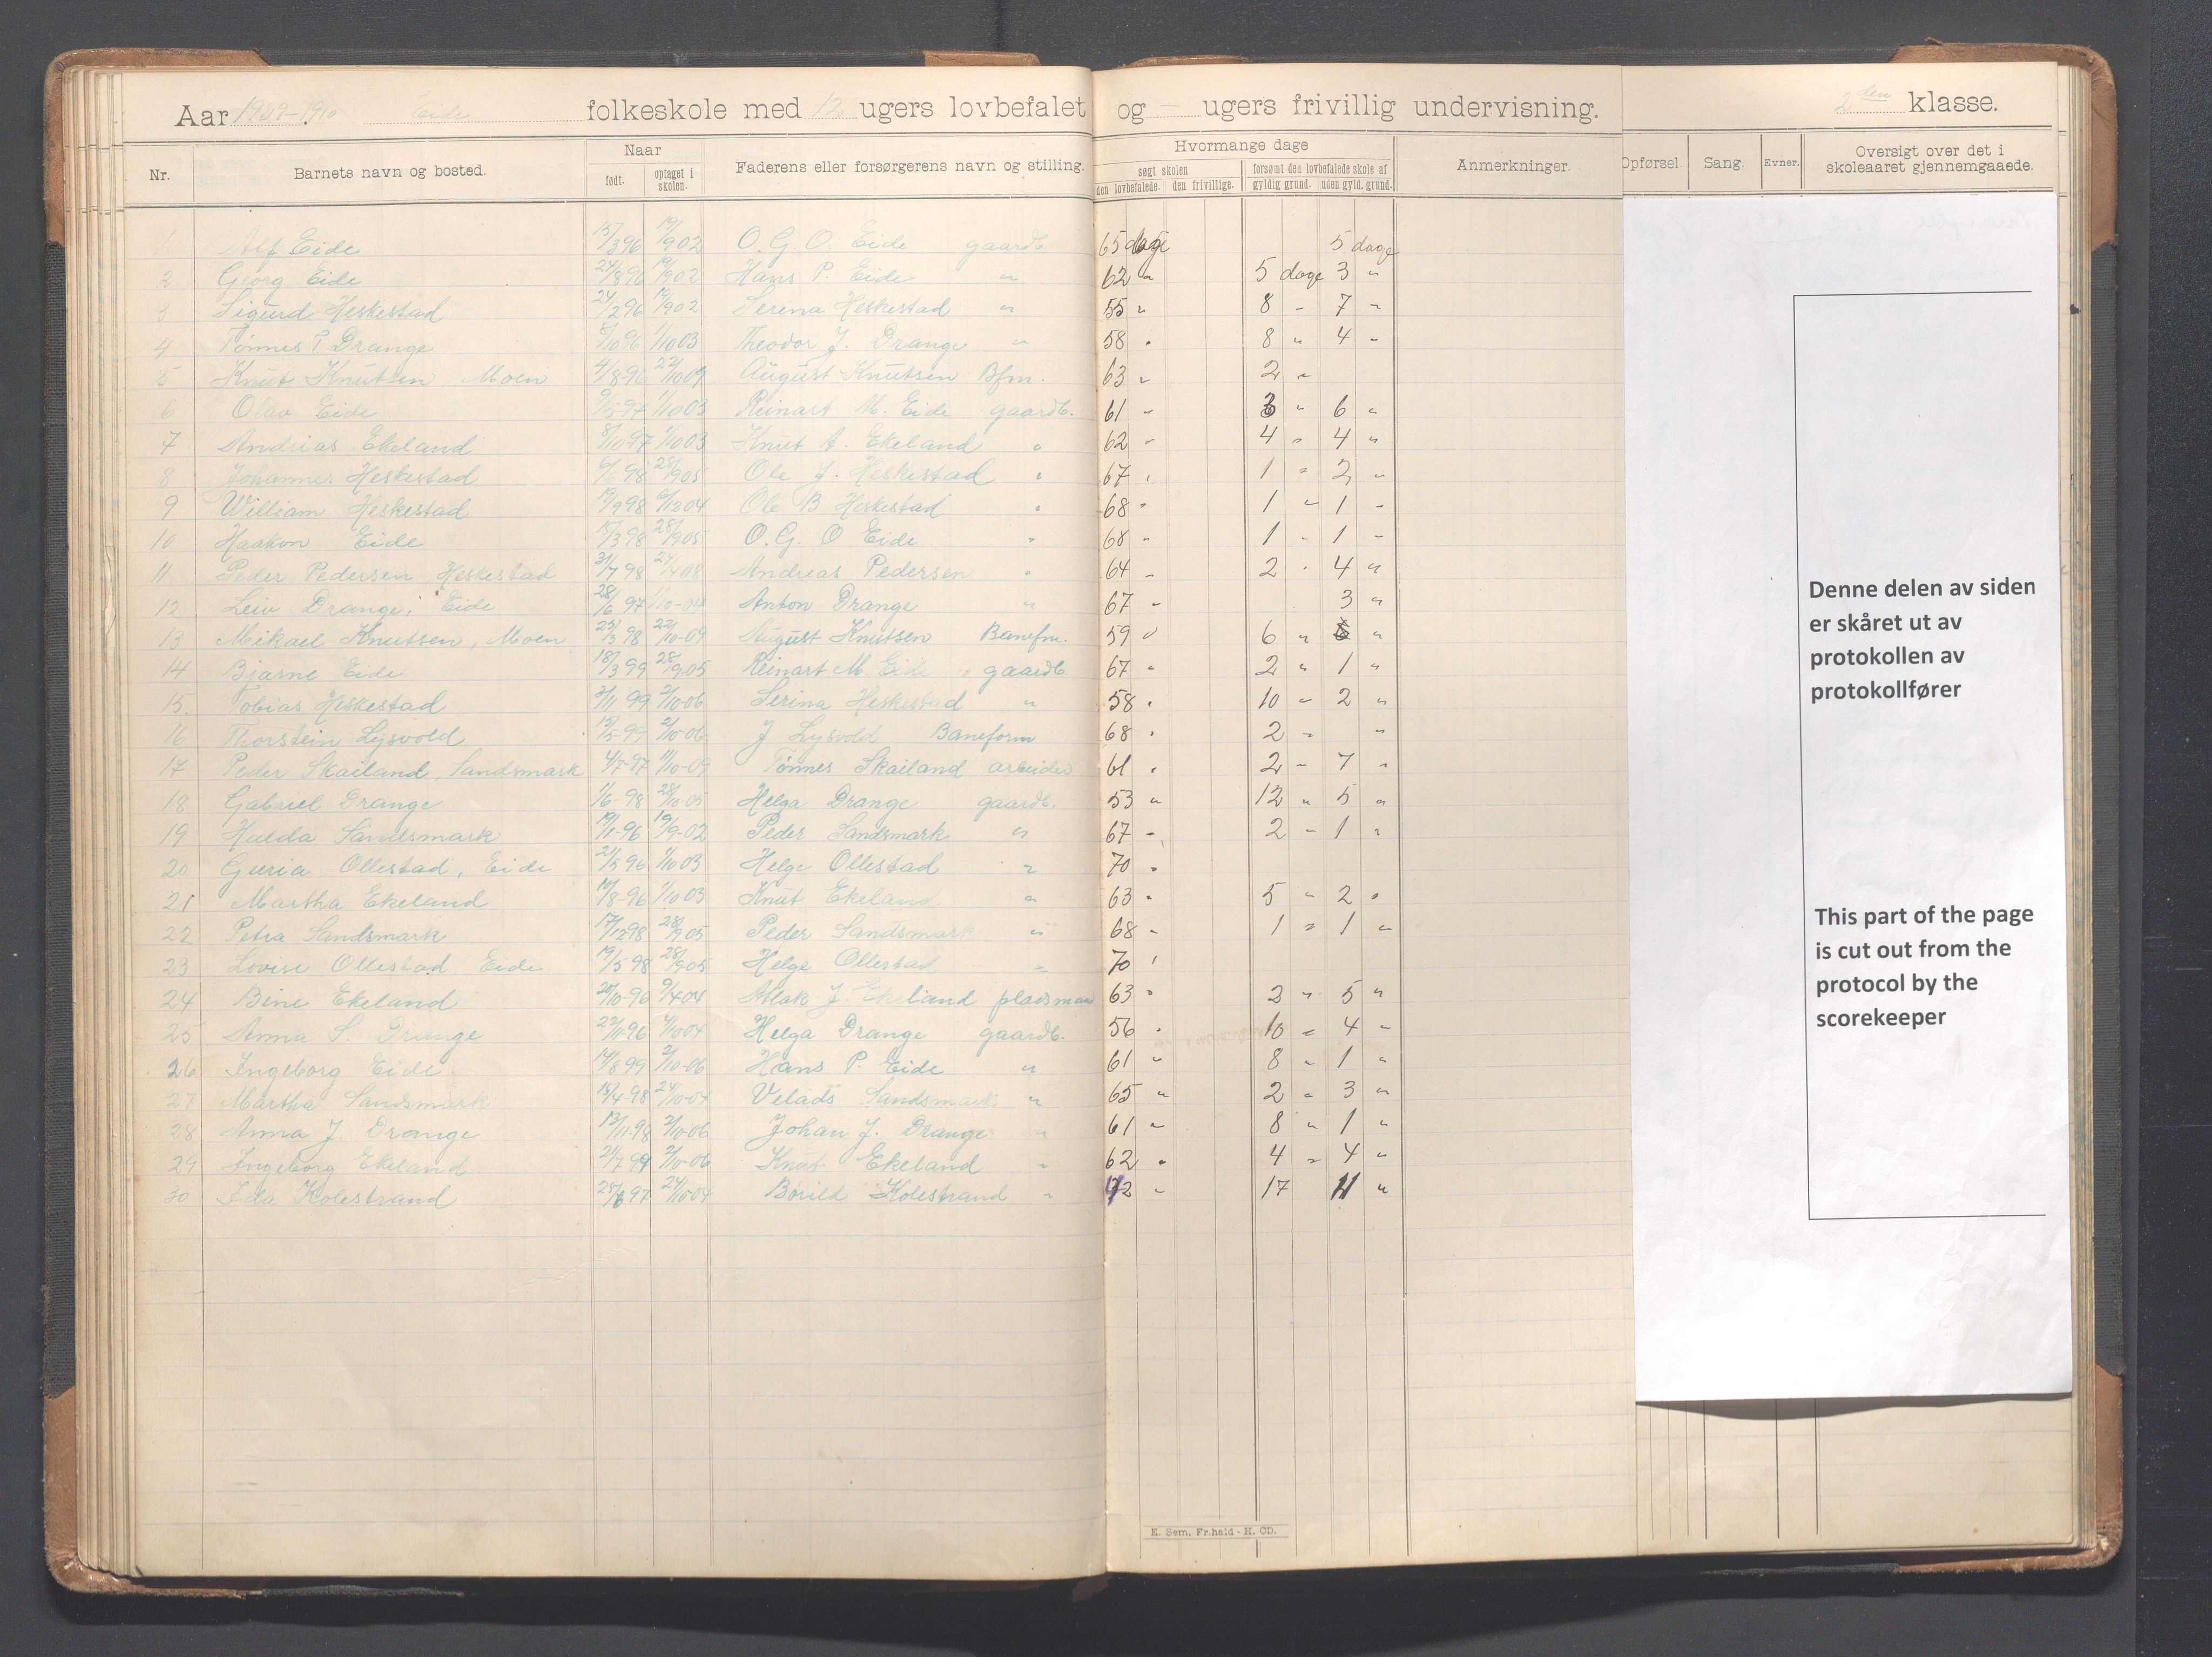 Aar 1909-1910 Eide folkeskole med 12 ugers lovbefalet og — ugers frivillig undervisning. 2den klasse.
Nr. Barnets navn og bosted. Naar født. optaget i skolen. Faderens eller forsørgerens navn og stilling. Hvormange dage søgt skolen den lovbefalede. den frivillige. forsømt den lovbefalede skole af gyldig grund. uden gyld. grund. Anmerkninger. Opførsel. Sang. Evner. Oversigt over det i skoleaaret gjennemgaaede.
1 Alf Eide 15/3 96 19/9 02 O. G. O. Eide gaardb. 65 dage 5 dage
2 Georg Eide 24/8 96 19/9 02 Hans P. Eide " 62 " 5 dage 3 "
3 Sigurd Heskestad 24/2 96 19/9 02 Serina Heskestad " 55 " 8 " 7 "
4 Tønnes T Drange 8/10 96 1/10 03 Theodor J. Drange " 58 " 8 " 4 "
5 Knut Knutsen Moen 4/8-96 22/10 09 August Knutsen Bfm. 63 " 2 "
6 Olav Eide 9/5-97 1/10 03 Reinart M. Eide gaardb. 61 " 3 " 6 "
7 Andrias Ekeland 8/10 97 1/10 03 Knut A. Ekeland " 62 " 4 " 4 "
8 Johannes Heskestad 6/6 98 28/9 05 Ole J. Heskestad " 67 " 1 " 2 "
9 William Heskestad 19/9 98 6/12 04 Ole B Heskestad " 68 " 1 " 1 "
10 Haakon Eide 15/3 98 28/9 05 O. G. O Eide " 68 " 1 " 1 "
11 Peder Pedersen Heskestad 31/7 98 24/4 08 Andreas Pedersen " 64 " 2 " 4 "
12 Leiv Drange, Eide 28/6 97 1/10-04 Anton Drange " 67 " 3 "
13 Mikael Knutsen, Moen 25/3 98 22/10-09 August Knutsen Banefm. 59 " 6 " 5 "
14 Bjarne Eide 18/3 99 28/9 05 Reinart M. Eide gaardb. 67 " 2 " 1 "
15. Tobias Heskestad 2/11 99 2/10-06 Serina Heskestad " 58 " 10 " 2 "
16 Thorstein Lysvold 15/5-99 2/10-06 J Lysvold Baneform 68 " 2 " "
17 Peder Skailand, Sandsmark 4/7-97 11/10-09 Tønnes Skailand arbeider 61 " 2 " 7 "
18 Gabriel Drange 1/6-98 28/10-05 Helga Drange gaardb. 53 " 12 " 5 "
19 Hulda Sandsmark 19/1-96 19/9-02 Peder Sandsmark " 67 " 2 " 1 "
20 Guria Ollestad, Eide 21/5 96 1/10 03 Helge Ollestad " 70 "
21 Martha Ekeland 19/8-96 1/10-03 Knut Ekeland " 63 " 5 " 2 "
22 Petra Sandsmark 17/12 98 28/9 05 Peder Sandsmark " 68 " 1 " 1 "
23 Lovise Ollestad Eide 19/5 98 28/9 05 Helge Ollestad " 70 "
24 Bine Ekeland 20/10-96 9/4 04 Atlak J. Ekeland pladsman 63 " 2 " 5 "
25 Anna S. Drange 22/11-96 4/10 04 Helga Drange gaardb. 56 " 10 " 4 "
26 Ingeborg Eide 14/8 99 2/10-06 Hans P. Eide " 61 " 8 " 1 "
27 Martha Sandsmark 15/4-98 24/10-04 Velads Sandsmark " 65 " 2 " 3 "
28 Anna J. Drange 13/11-98 2/10-06 Johan J. Drange " 61 " 8 " 1 "
29 Ingeborg Ekeland 21/7 99 2/10-06 Knut Ekeland " 62 " 4 " 4 "
30 Ida Kolestrand 25/6 97 24/10-04 Børild Kolestrand " 42 " 17 11 "
Denne delen av siden
er skåret ut av
protokollen av
protokollfører
This part of the page
is cut out from the
protocol by the
scorekeeper
E. Sem, Fr.hald - H. CD.